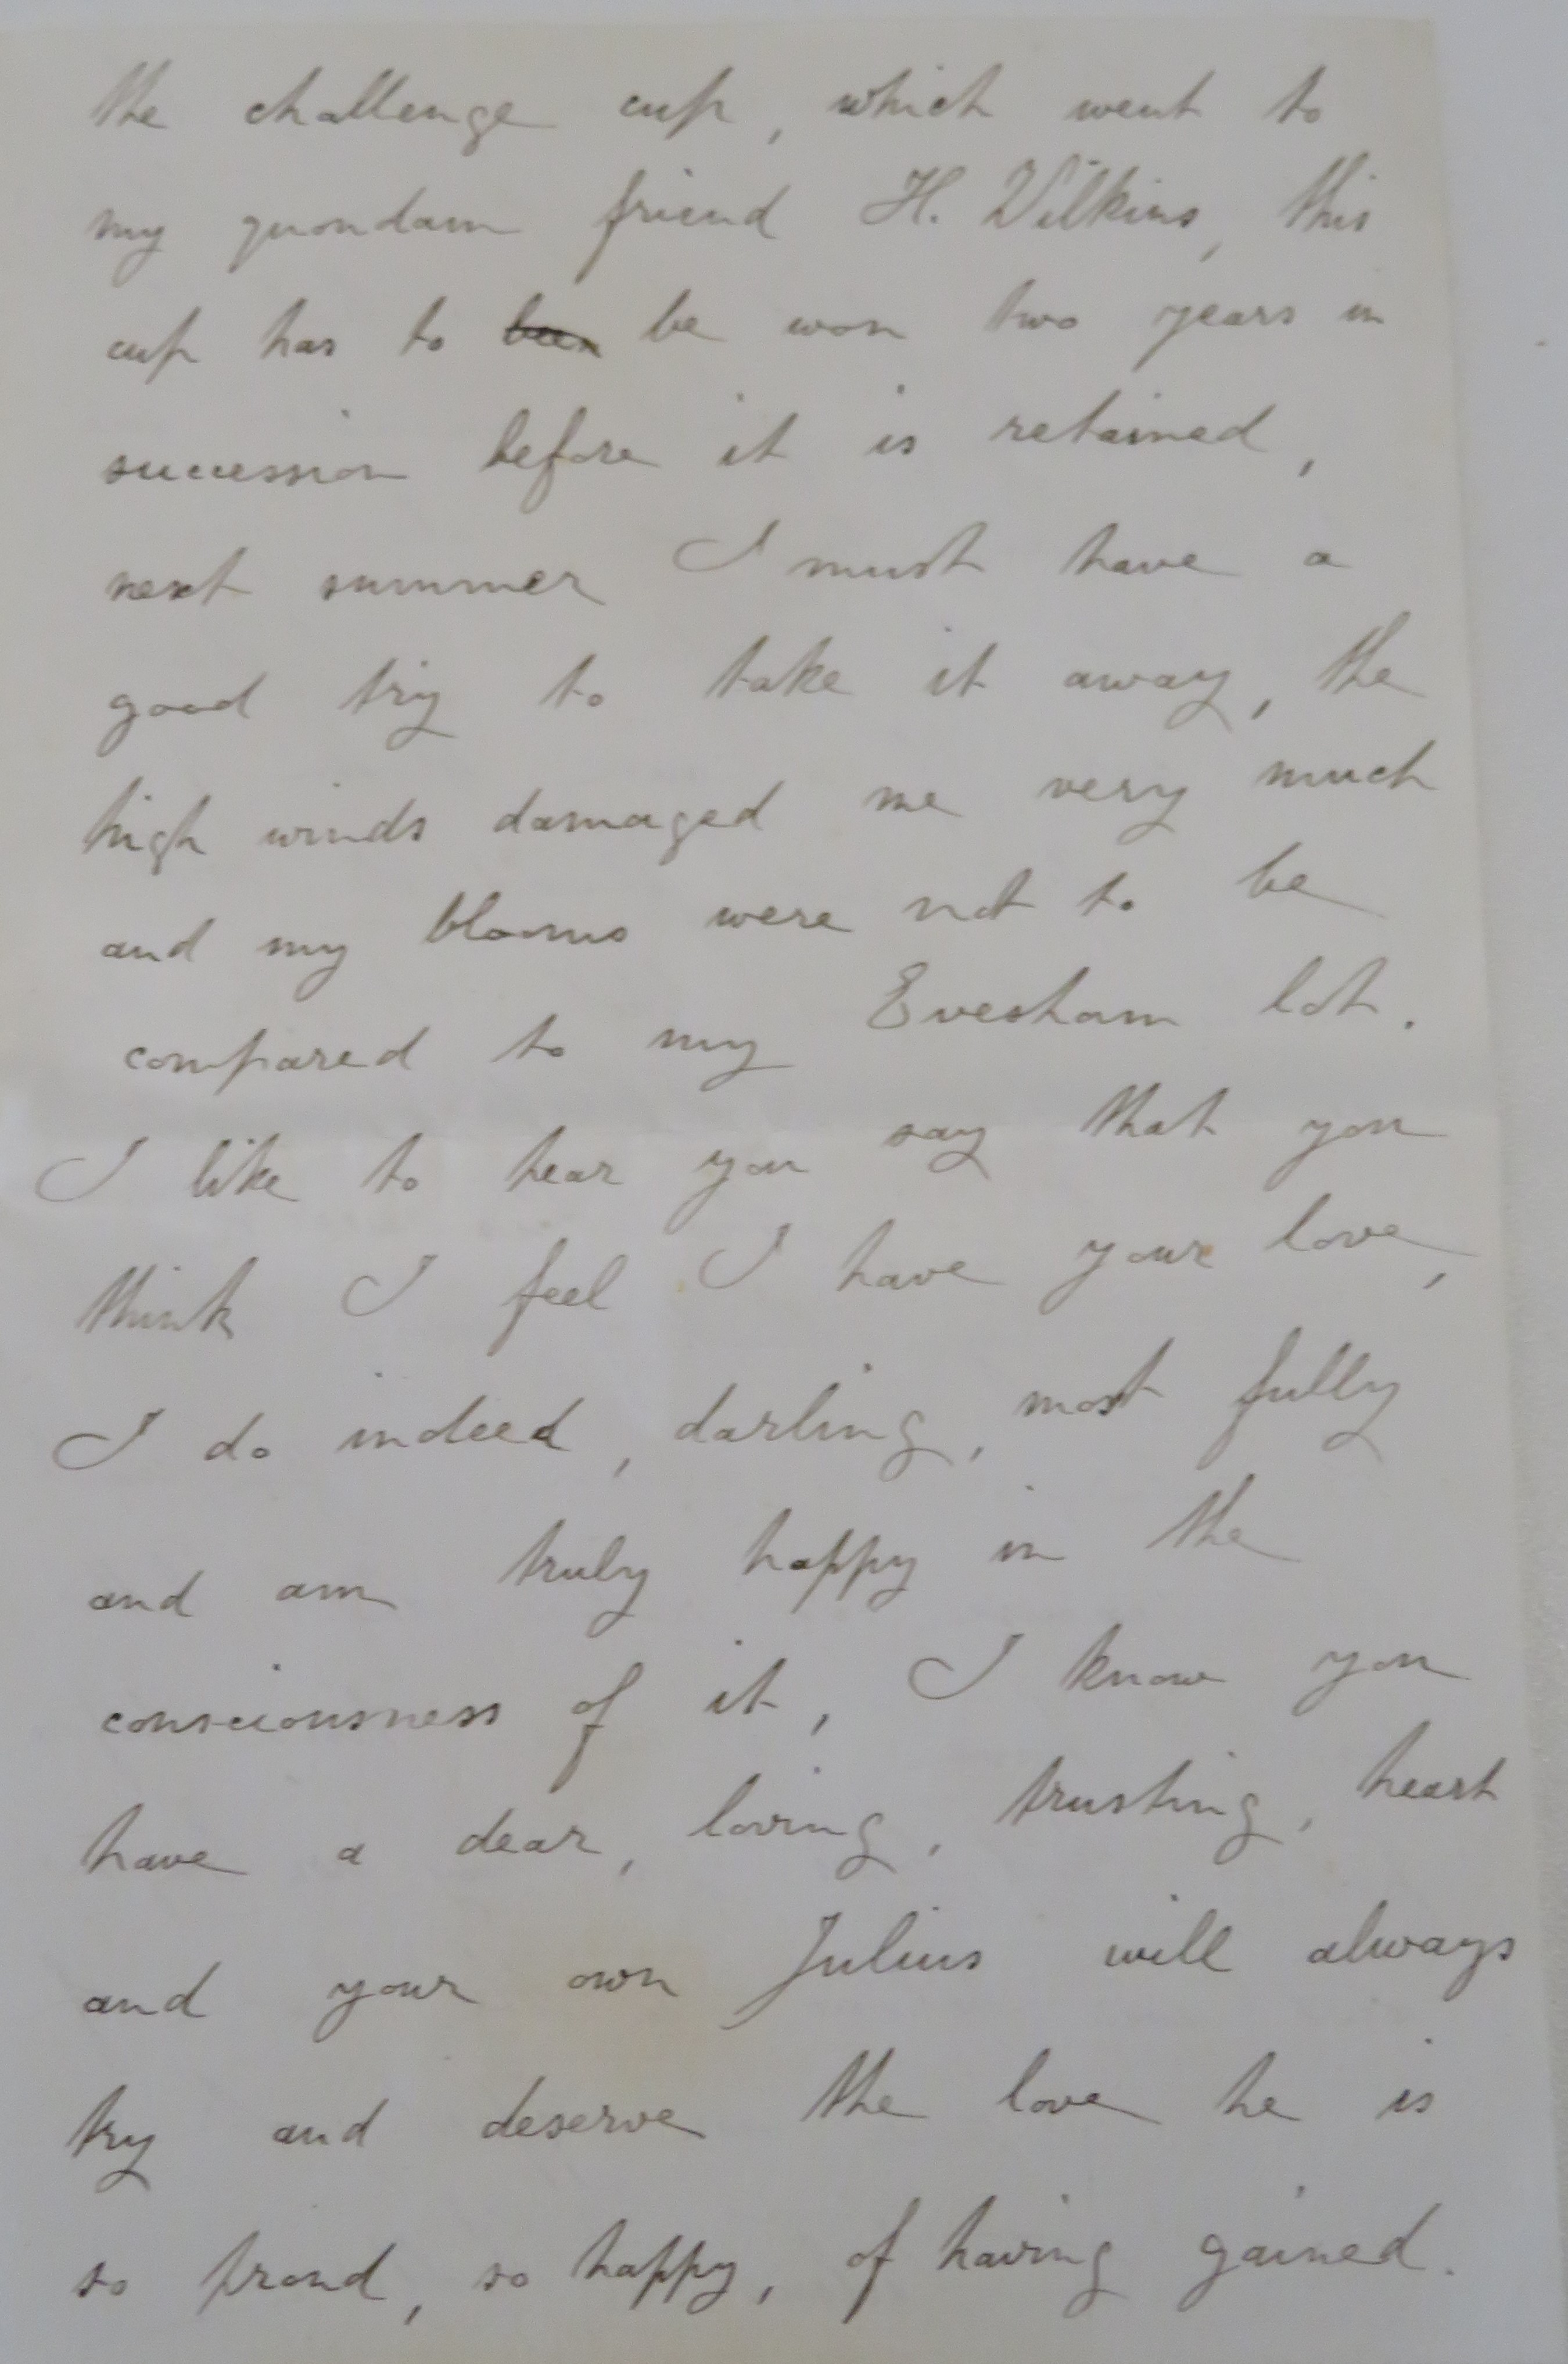 the challenge cup, which went to
my quondam friend H. Wilkins, this
cup has to been be won two years in
succession before it is retained,
next summer I must have a
good try to take it away, the
high winds damaged me very much
and my blooms were not to be
compared to my Evesham lot.
I like to hear you say that you
think I feel I have your love,
I do indeed, darling, most fully
and am truly happy in the
consciousness of it, I know you
have a dear, loving, trusting, heart
and your own Julius will always
try and deserve the love he is
so proud, so happy, of having gained.